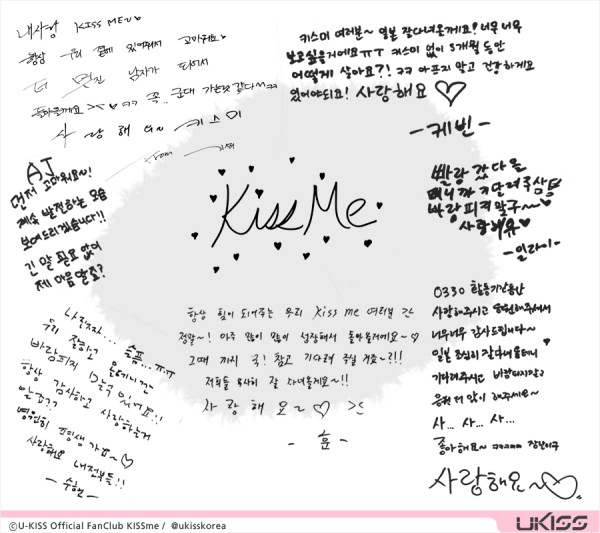 내사랑 KISS ME~♡
항상 우리 곁에 있어줘서 고마워요♡
더 멋진 남자가 되어서
돌아올게요 ><♡ ㅋㅋ 꼭 군대 가는것 같다~ㅋㅋ
사랑해요~ 키스미
키스미 여러분~ 일본 잘다녀올께요! 너무너무
보고싶을거에요ㅠㅜ 키스미 없이 3개월 동안
어떻게 살아요?! ㅋㅋ 아프지 말고 건강하게요
있어야되요! 사랑해요♡
-케빈-
AJ
먼저 고마워요~!
계속 발전하는 모습
보여드리겠습니다!!
긴 말 필요 없이
제 마음 알죠?
Kiss Me
빨랑 갔다올
테니까 기다려주삼
바랑피지말구~~
사랑해유♡
-일라이-
나 진짜... 슬픔...ㅠㅠ
우리 잘하고 올테니깐
바람피지 말고 있어요!!
항상 감사하고 사랑하는거
알죠??
영원히 평생 가요~♡
사랑해요 내전부들!!
- 수현 -
항상 힘이 되어주는 우리 Kiss me 여러분
정말~! 아주 많이 많이 성장해서 돌아올거에요~♡
그때 까지 꾹! 참고 기다려 주실 거죠~?!!!
저희들 무사히 잘 다녀올게요~!!
사랑해요~♡ ><
- 훈 -
0330 활동기간동안
사랑해주시고 응원해주셔서
너무너무 감사드립니다~
일본 조심히 잘다녀올테니
기다려주시고 바람피지말고
응원 더 많이 해주세요~
사... 사... 사...
좋아해요~ ㅋㅋㅋㅋ 장난이구
사랑해요~♡
ⓒU-KISS Official FanClub KISSme / @ukisskorea
UKISS